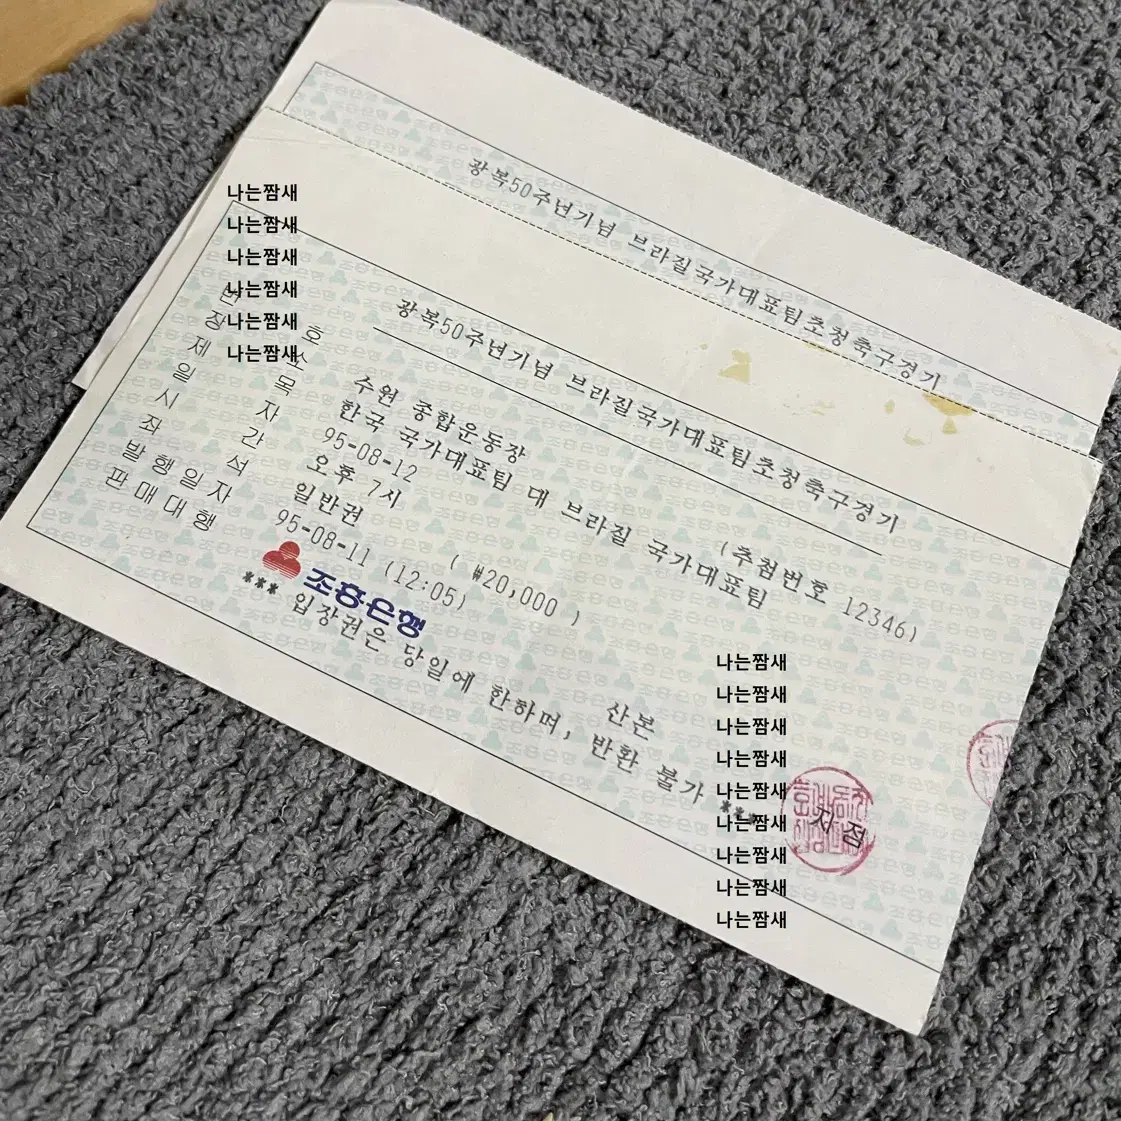 광복50주년기념 브라질국가대표팀초청축구경기
나는짬새
나는짬새
나는짬새
나는짬새
나는짬새
나는짬새
광복50주년기념 브라질국가대표팀초청축구경기
번 호 (추첨번호 12346)
장 소 수원 종합운동장
제 목 한국 국가대표팀 대 브라질 국가대표팀
일 자 95-08-12
시 간 오후 7시
좌 석 일반권 ( ₩20,000 )
발행일자 95-08-11 (12:05)
판매대행 조흥은행 산본 지점
*** 입장권은 당일에 한하며, 반환 불가 ***
나는짬새
나는짬새
나는짬새
나는짬새
나는짬새
나는짬새
나는짬새
나는짬새
나는짬새